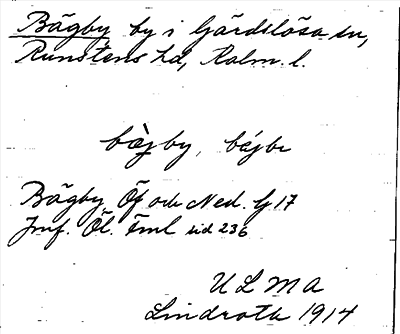 Bägby by i Gärdslösa sn,
Runstens hd, Kalm. l.
bæ̀jby, béjbe
Bägby Öf och Ned. G 17
Jmf. Öl. Fml sid 236
U L M A
Lindroth 1914